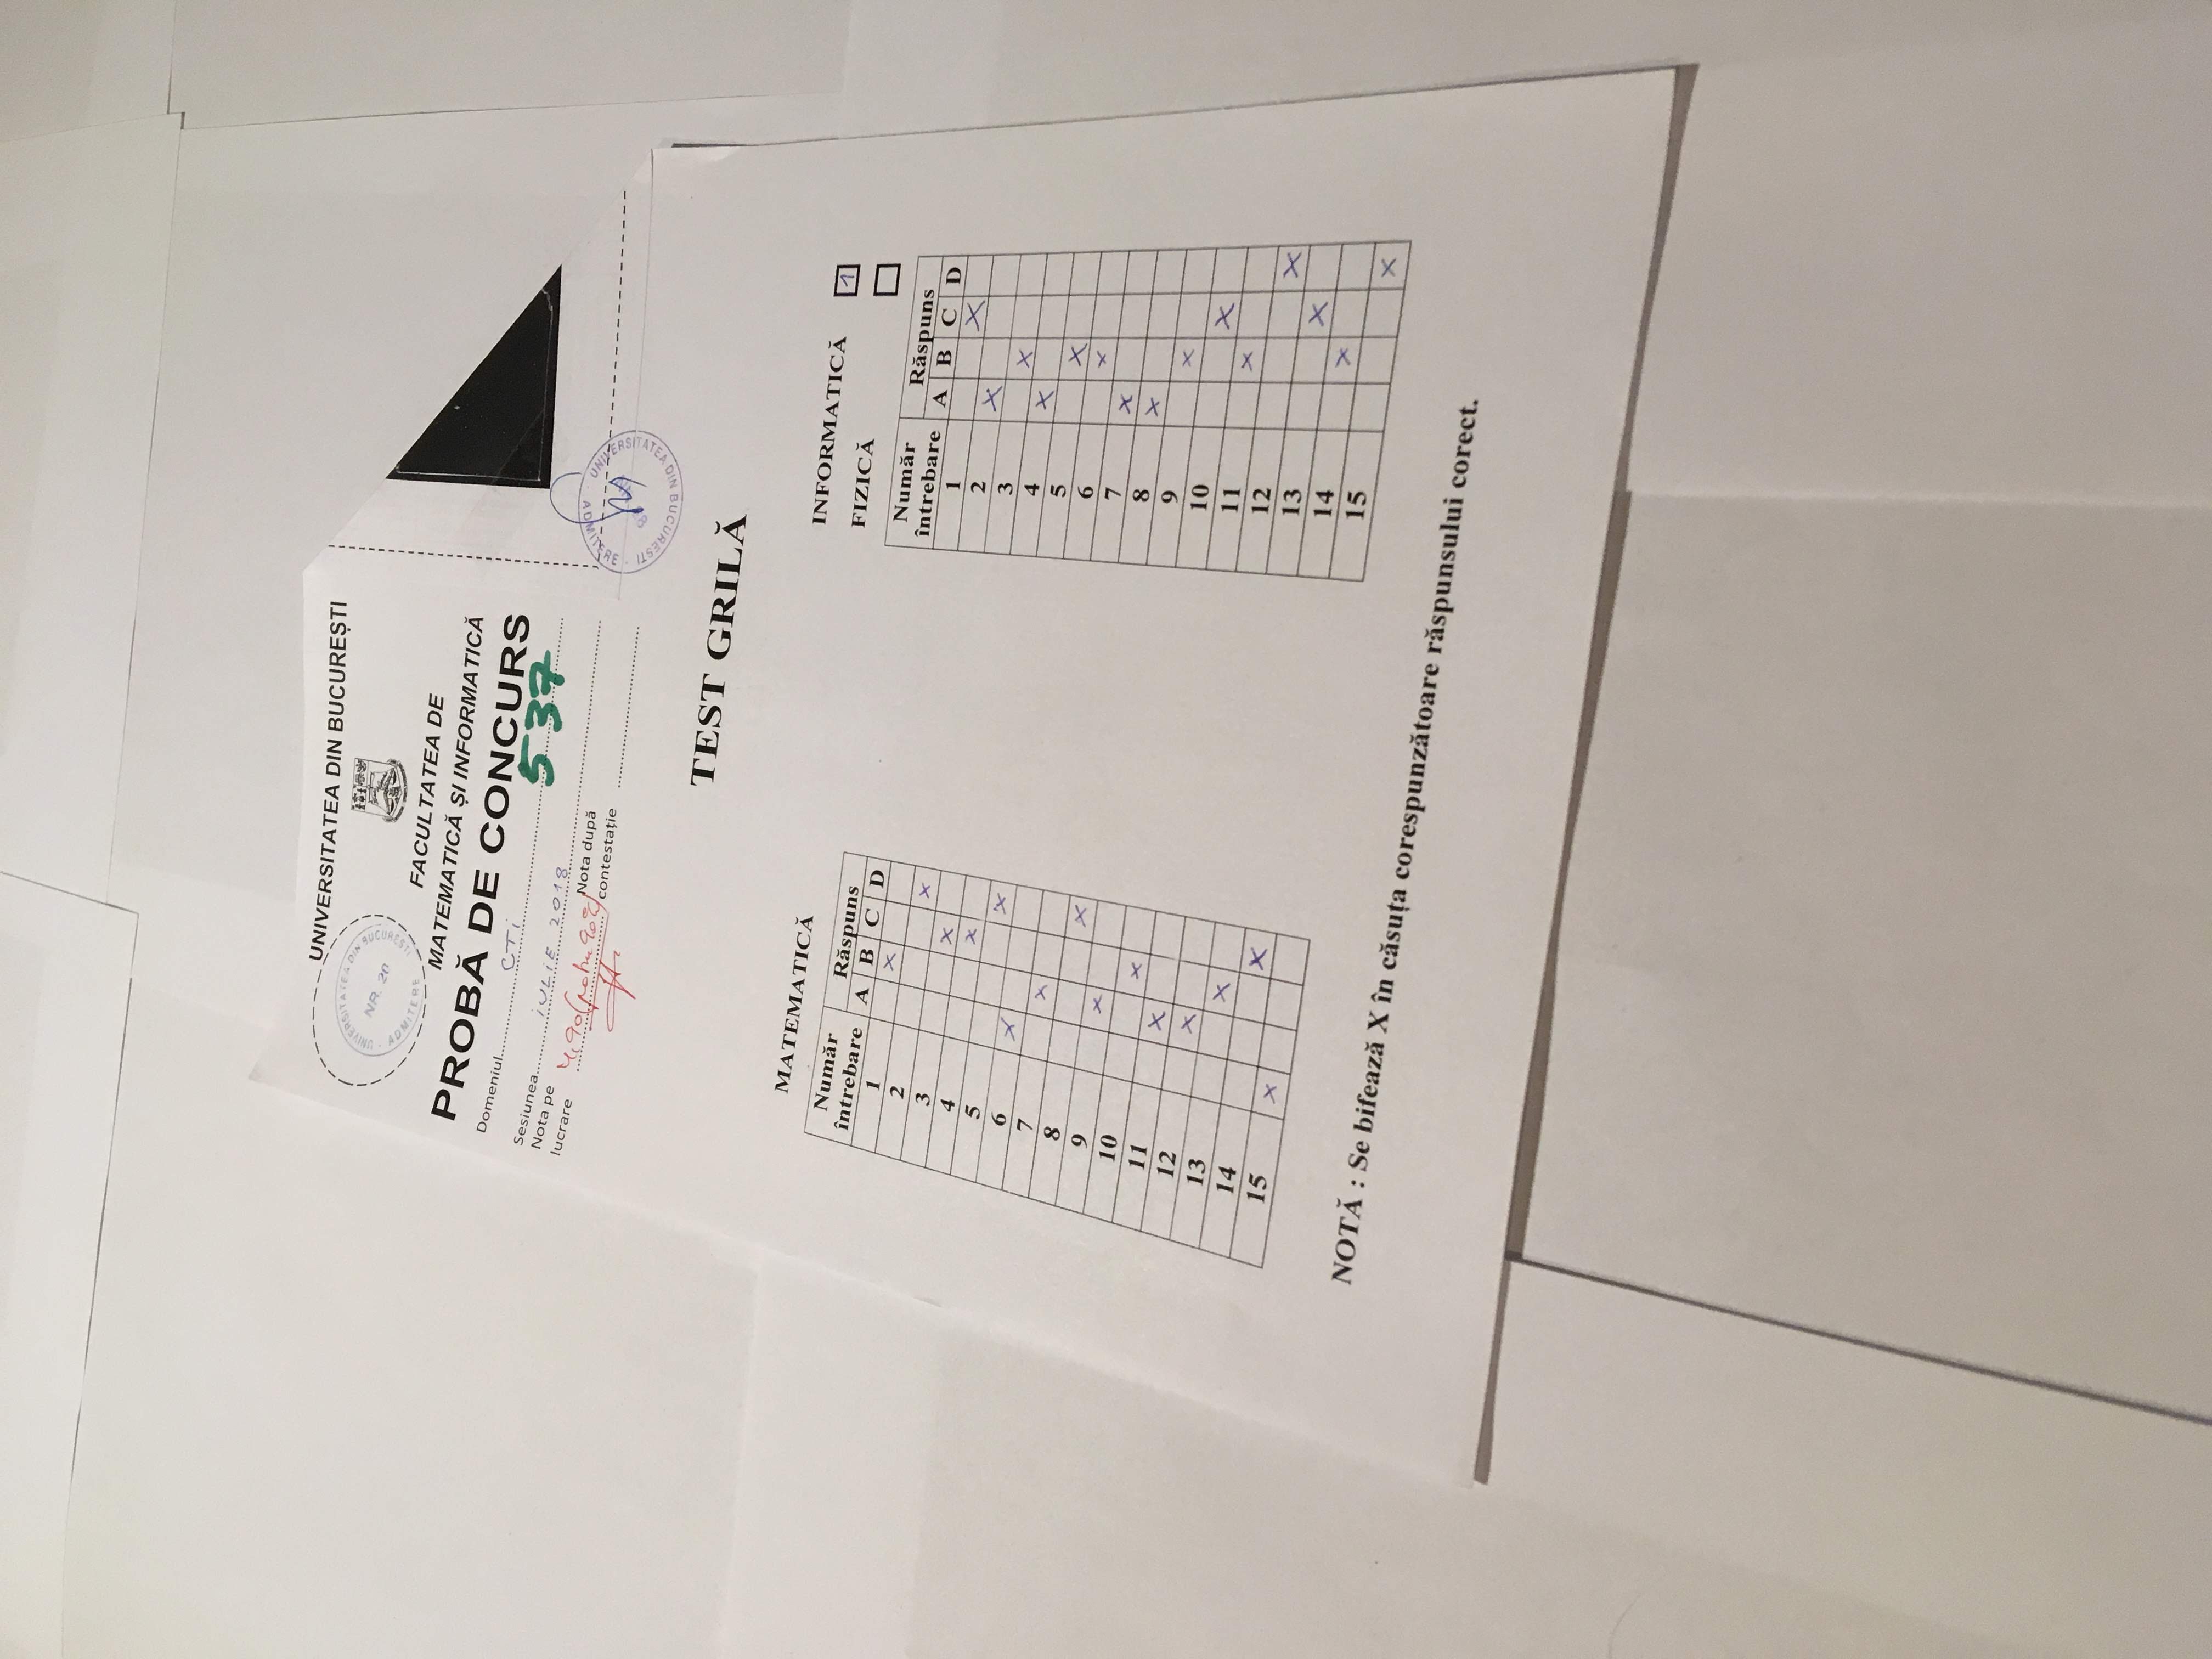 UNIVERSITATEA DIN BUCUREȘTI
UNIVERSITATEA DIN BUCUREȘTI
NR. 20
ADMITERE
FACULTATEA DE
MATEMATICĂ ȘI INFORMATICĂ
PROBĂ DE CONCURS
Domeniul CTI
537
Sesiunea IULIE 2018
Nota pe lucrare 4,90 (patru 90%)
Nota după contestație
UNIVERSITATEA DIN BUCUREȘTI
ADMITERE
TEST GRILĂ
MATEMATICĂ
Număr întrebare Răspuns
A B C D
1 X
2 X
3 X
4 X
5 X
6 X
7 X
8 X
9 X
10 X
11 X
12 X
13 X
14 X
15 X
INFORMATICĂ 1
FIZICĂ
Număr întrebare Răspuns
A B C D
1 X
2 X
3 X
4 X
5 X
6 X
7 X
8 X
9 X
10 X
11 X
12 X
13 X
14 X
15 X
NOTĂ : Se bifează X în căsuța corespunzătoare răspunsului corect.